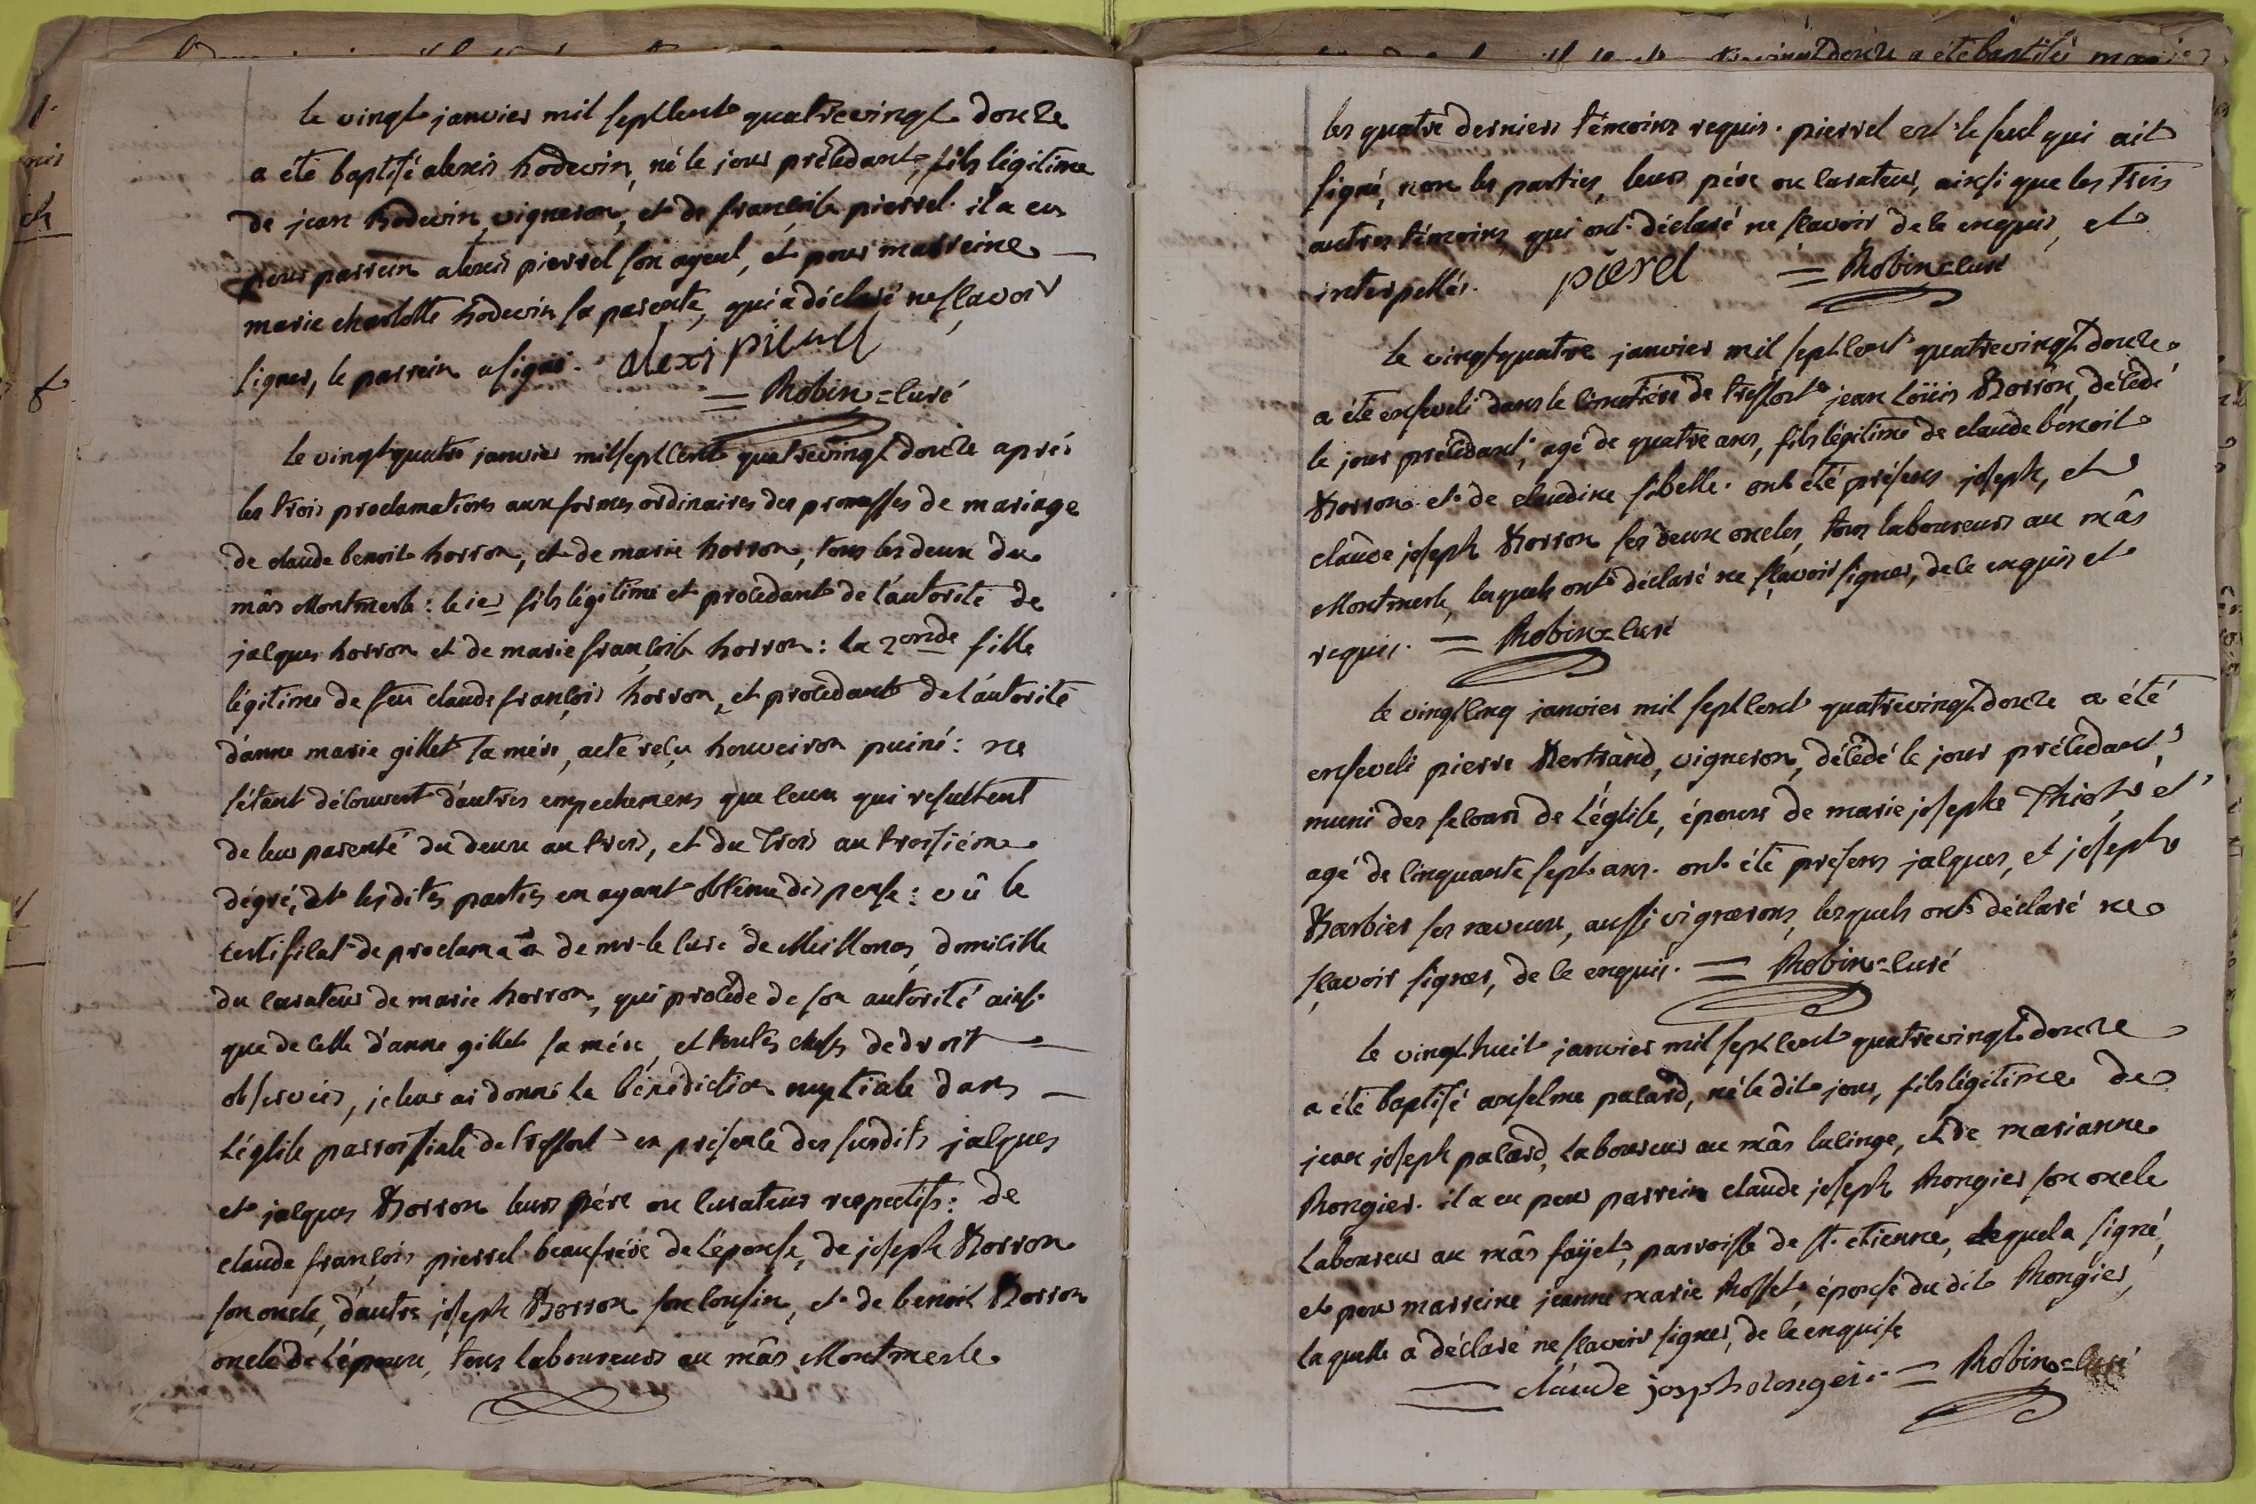 le vingt janvier mil sept cent quatrevingt douze
a été baptisé alexis hodevin, né le jour précédant, fils légitime
de jean hodevin, vigneron, et de françoise pierrel. il a eu
pour parrein alexis pierrel son ayeul, et pour marreine
marie charlotte hodevin sa parente, qui a déclaré ne sçavoir
signer, le parrein a signé. alexi
= Robin = curé
le vingt quatre janvier mil sept cent quatrevingt douze après
les trois proclamations aux formes ordinaires des promesses de mariage
de claude benoit borron, et de marie borron, tous les deux du
mâs Montmerle : le 1er fils légitime et procédant de l'autorité de
jacques borron et de marie françoise borron : la 2onde fille
légitime de feu claude françois borron, et procédant de l'autorité
d'anne marie gillet sa mére, acte reçu puiné : ne
s'étant découvert d'autres empechemens que ceux qui resultent
de leur parenté du deux au trois, et du trois au troisiéme
dégré, et les dites parties en ayant obtenu dispense : vû le
certificat de proclamaon de mr le curé de Meillonas, domicille
du curateur de marie borron, qui procéde de son autorité ainsi
que de celle d'anne gillet sa mére, et toutes choses de droit
observées, je leur ai donné la bénédiction nuptiale dans
l'église parroissiale de treffort en présence des susdits jacques
et jacques Borron leurs pére ou curateur respectifs : de
claude françois pierrel beaufrére de l'épouse, de joseph Borron
son oncle, d'autre joseph Borron son cousin, et de benoit Borron
oncle de l'époux, tous laboureurs au mâs Montmerle
les quatre derniers témoins requis. pierrel est le seul qui ait
signé, non les parties, leurs pére ou curateur, ainsi que les trois
autres témoins, qui ont déclaré ne sçavoir de ce enquis, et
interpellés. pierel = Robin = curé
le vingt quatre janvier mil sept cent quatrevingt douze
a été enseveli dans le cimetiére de treffort jean Loüis Borron, décédé
le jour précédant, agé de quatre ans, fils légitime de claude benoit
Borron et de claudine sibelle. ont été présens joseph, et
claude joseph Borron ses deux oncles, tous laboureurs au mâs
Montmerle, lesquels ont déclaré ne sçavoir signer, de ce enquis et
requis. = Robin = curé
le vingt cinq janvier mil sept cent quatrevingt douze a été
enseveli pierre Bertrand, vigneron, décédé le jour précédant,
muni des secours de l'église, époux de marie josephe Thiot, et
agé de cinquante sept ans. ont été présens jacques, et joseph
Barbier ses neveux, aussi vignerons, lesquels ont déclaré ne
sçavoir signer, de ce enquis. = Robin = curé
le vingt huit janvier mil sept cent quatrevingt douze
a été baptisé anselme palard, né le dit jour, fils légitime de
jean joseph palard, laboureur au mâs lucinge, et de marianne
Rongier. il a eu pour parrein claude joseph Rongier son oncle
laboureur au mâs faÿet, parroisse de st. etienne, lequel a signé,
et pour marreine jeanne marie Rosset, épouse du dit Rongier,
laquelle a déclaré ne sçavoir signer, de ce enquise
= claude josph rongeir = Robin = curé